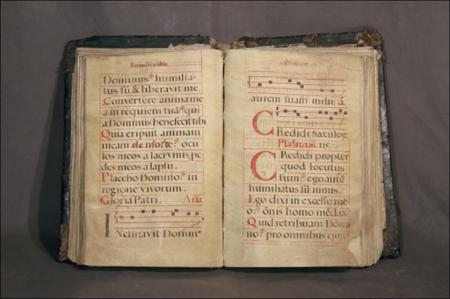 Dominus humilia-
tus sū & liberavit me.
Convertere anima me
a in requiem tuā qui
a Dominus benefecit tibi.
Quia eripuit animam
meam de morte ocu
los meos a lacrymis, pe
des meos a lapsu.
Placebo Domino in
regione vivorum.
Gloria Patri. Aña
Inclinavit Domin
aurem suam mihi. ā.
Credidi Sæculor
Psalmus
Credidi propter
quod locutus
sum ego autē
humiliatus sū nimis.
Ego dixi in excessu me
o ōnis homo mēdax
Quid retribuam Domi
no pro omnibus quæ